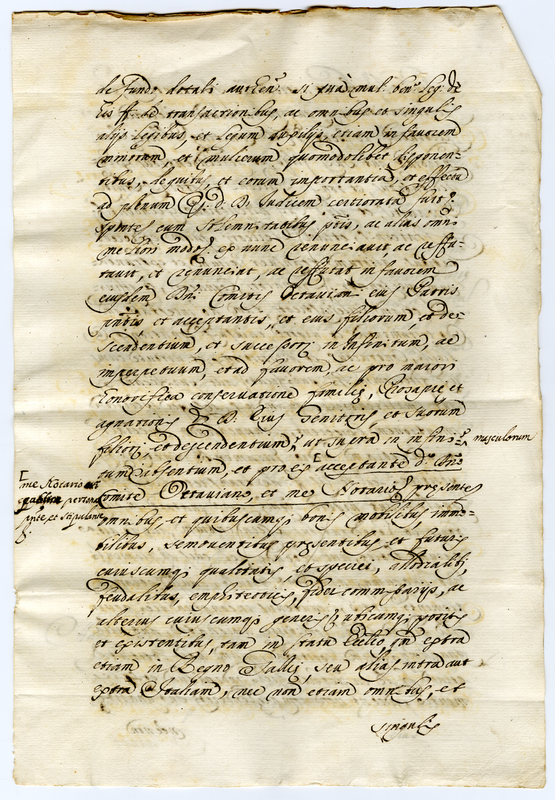 de fundo dotali aut Ceñ. si quā mul. ben. leg.
ff. de transactionibus, ac omnibus et singulis
alijs legibus, et legum auxilijs, etiam in favorem
minorum, et mulierum quomodolibet disponen-
tibus, de quibus, et eorum importantia, et effectu
ad plenum d. D. Iudicem certiorata fuit
sponte cum solemnitatibus pñtis, ac alias omni
meliori modo ex nunc renunciavit, ac reffu-
tavit, et renunciat, ac reffutat in favorem
eiusdem Dñi Comitis Octaviani eius Patris
pñtis, et acceptantis, et eius filiorum, et de-
scendentium, et successorū in infinitum, ac
imperpetuum, et ad favorem, ac pro maiori
conservatione familie, Prosapie et
agnationis D. D. eius Genitoris, et suorum
filiorū, et descendentium, ut supra in infini- masculorum
tum absentium, et pro eis [ acceptante dº Dño
[ me Notario uti
publica persona
pñte et stipulante
Comite Octaviano, et me Notario pręsente
omnibus, et quibuscumq; bonis mobilibus, immo-
bilibus, semoventibus pręsentibus et futuris
cuiuscumq; qualitatis, et speciei, allodialib;
feudalibus, emphiteoticis, fidei commissarijs, ac
alterius cuiuscumq; generis ubicumq; positis
et existentibus, tam in statu Eccłco, quā extra
etiam in Regno Gallię, seu alias intra aut
extra Italiam, nec non etiam omnibus, et
singulis